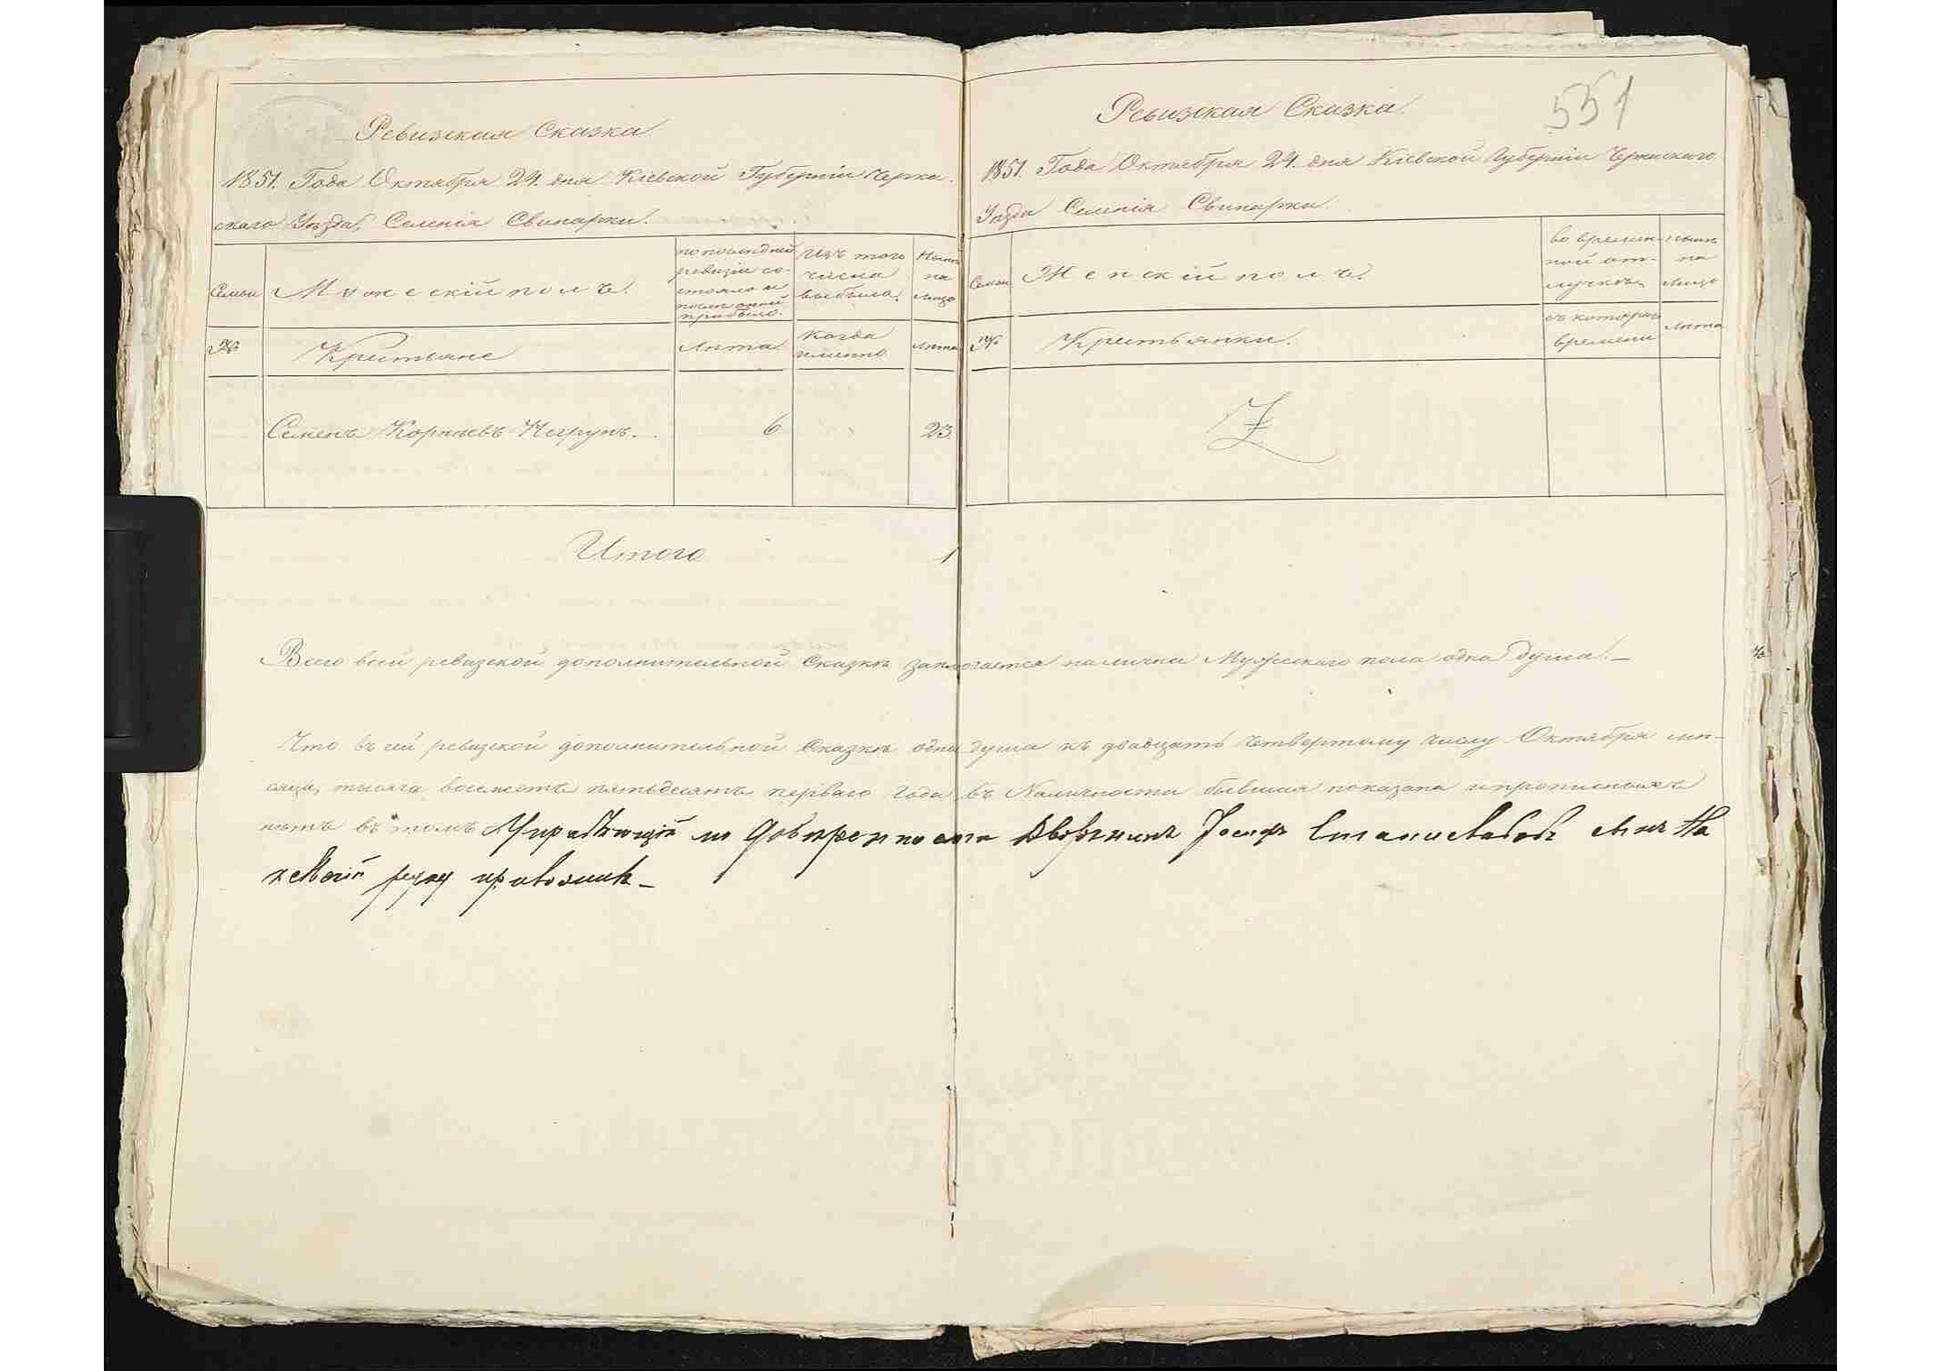 Ревизская Сказка
1851. Года Октября 24. дня Кіевской Губерніи Черка
скаго Уѣзда, Селенія Свинарки.
Семьи
Мужескій полъ.
по послѣдней
ревизіи со-
стояло и
послѣ оной
прибыло.
Изъ того
числа
выбыло.
Нынѣ
на
лицо
№
Крестьяне
Лѣта.
Когда
именно
Лѣта
Семенъ Корнѣевъ
6
23.
Итого 1
551
Ревизская Сказка.
1851. Года Октября 24. дня Кіевской Губерніи
Уѣзда Селенія Свинарки.
Семьи
Женскій полъ.
во времен-
ной от-
лучкѣ,
Нынѣ
на
лицо
№
Крестьянки.
съ котораго
времени
Лѣта
Всего всей ревизской дополнительной Сказкѣ заключается на лично Мужескаго пола одна душа. —
Что въ сей ревизской дополнительной Сказкѣ одна душа къ двадцать четвертому числу Октября мѣ-
сяца, тысяча восемсотъ пятьдесятъ перваго Года въ Наличности бывшая показана и прописныхъ
нѣтъ въ томъ Управляющій по Доверенности Дворянинъ Іосифъ Станиславовъ
руку приложилъ —